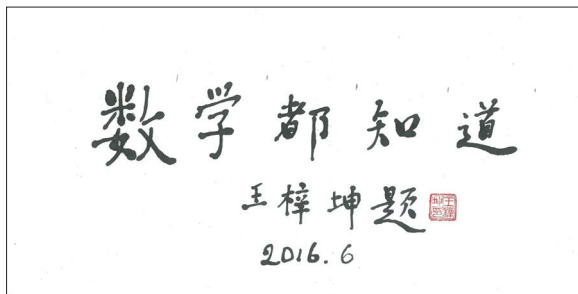 数学都知道
王梓坤题
2016.6